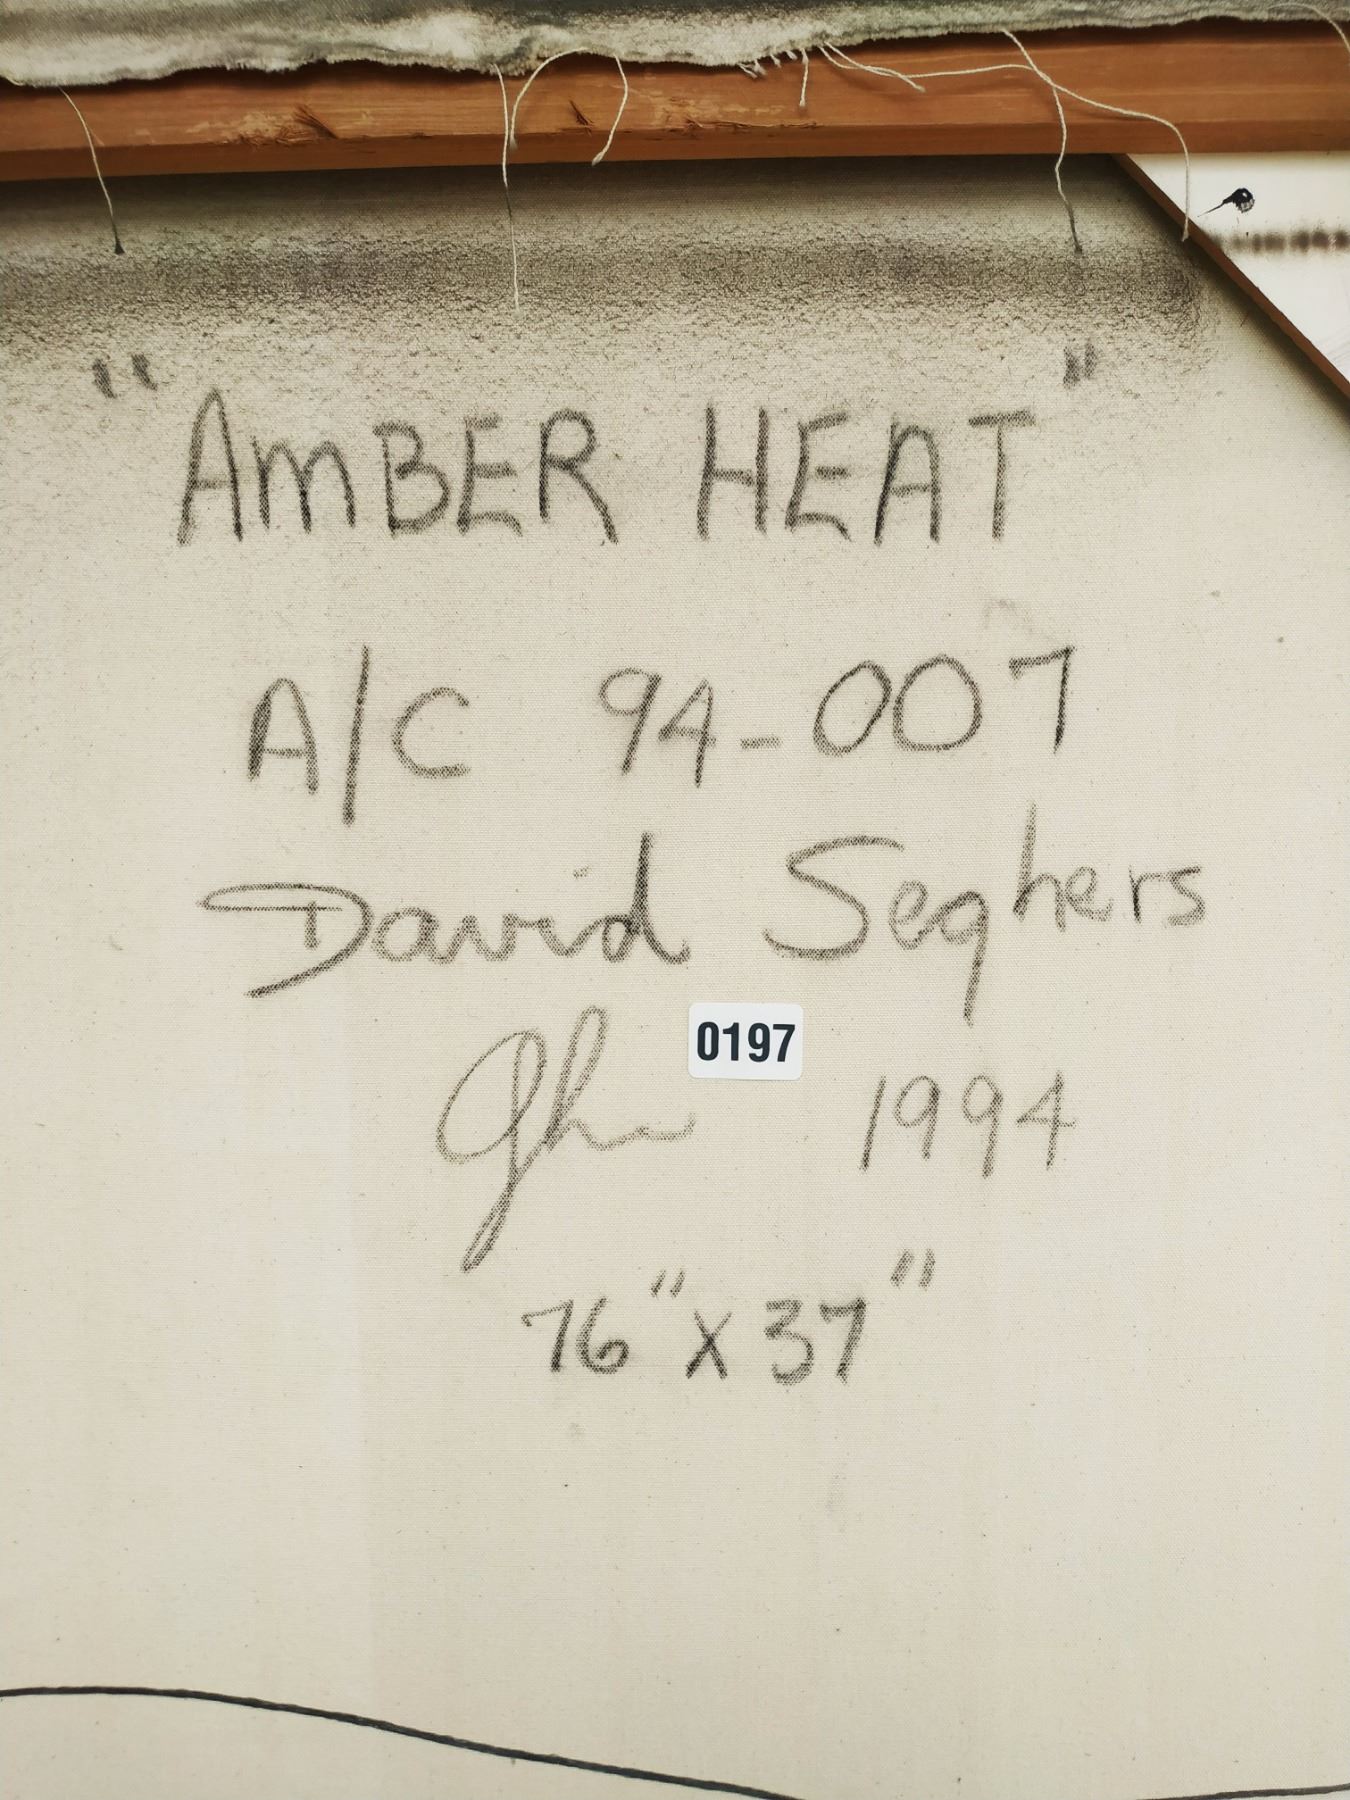 "AMBER HEAT"
A/C 94-007
David Seghers
0197
1994
76" X 37"